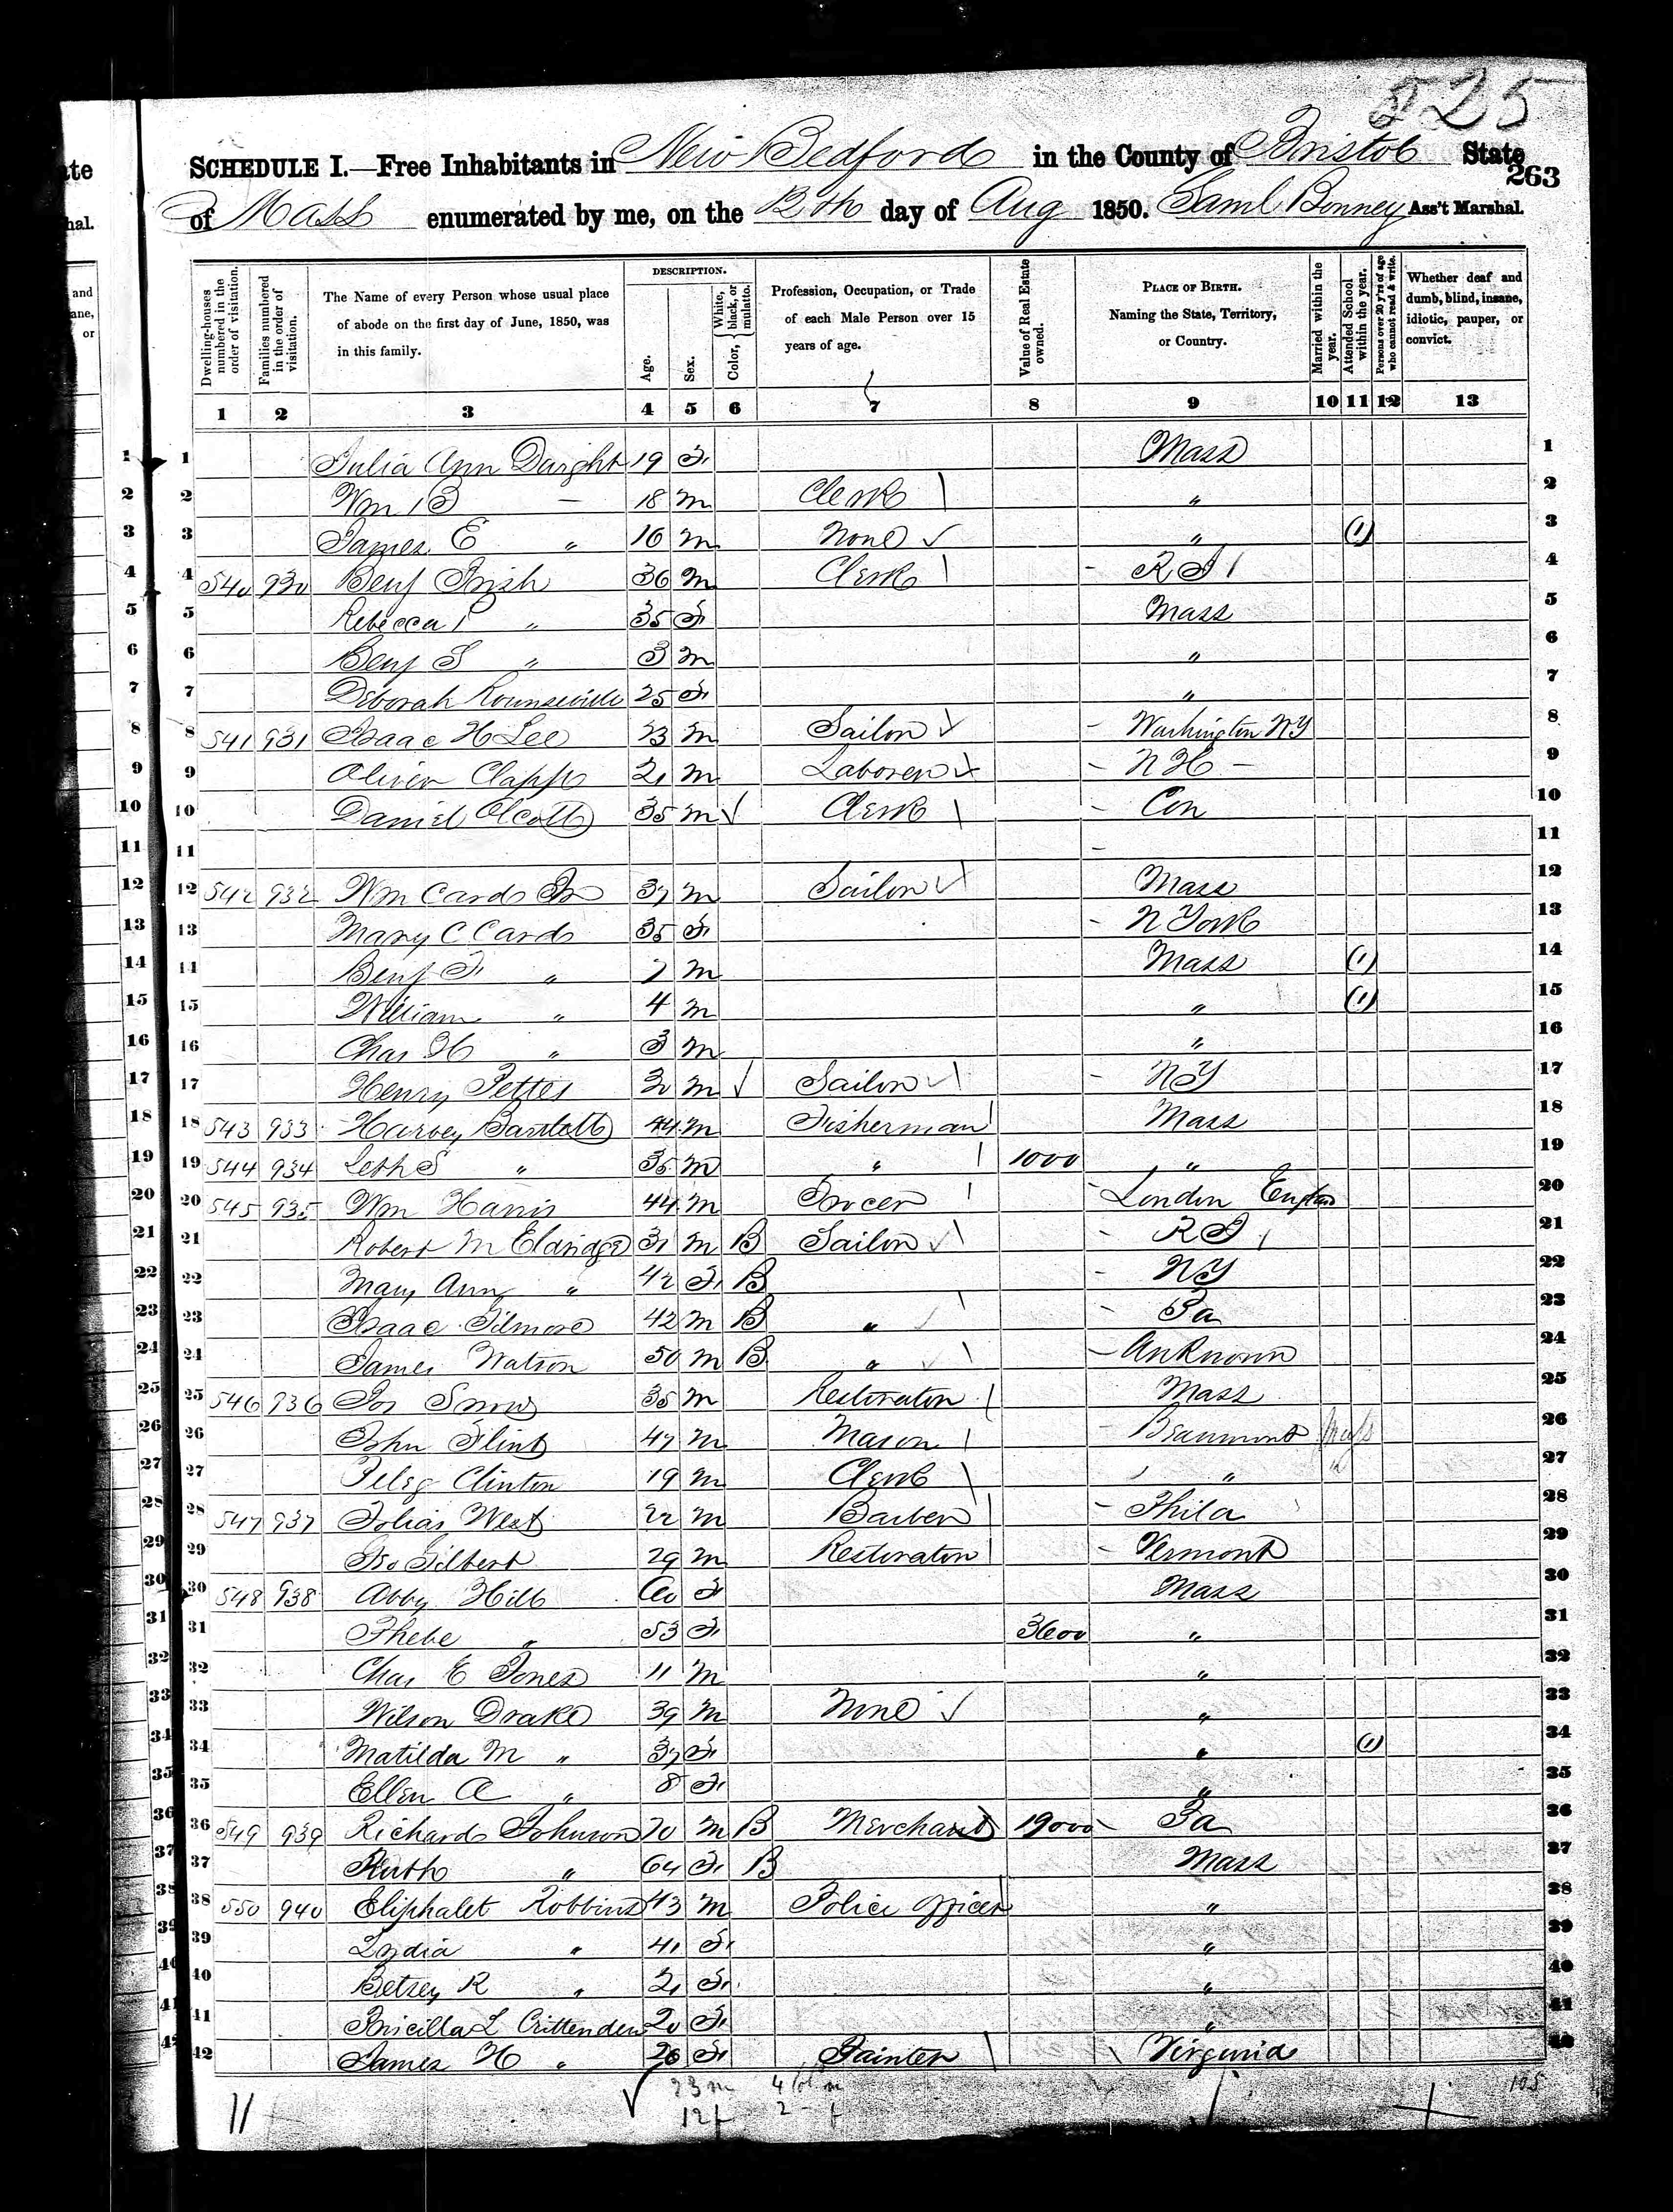 525
SCHEDULE I.—Free Inhabitants in New Bedford in the County of Bristol State
263
of Mass enumerated by me, on the 12th day of Aug 1850. Saml Bonney Ass't Marshal.
Dwelling-houses numbered in the order of visitation. Families numbered in the order of visitation. The Name of every Person whose usual place of abode on the first day of June, 1850, was in this family. DESCRIPTION. Age. Sex. Color, White, black, or mulatto. Profession, Occupation, or Trade of each Male Person over 15 years of age. Value of Real Estate owned. PLACE OF BIRTH. Naming the State, Territory, or Country. Married within the year. Attended School within the year. Persons over 20 y'rs of age who cannot read & write. Whether deaf and dumb, blind, insane, idiotic, pauper, or convict.
1 2 3 4 5 6 7 8 9 10 11 12 13
1 Julia Ann Daright 19 F Mass 1
2 Wm B — 18 M Clerk " 2
3 James E " 16 M None " (1) 3
4 540 930 Benj Irish 36 M Clerk R I 4
5 Rebecca P " 35 F Mass 5
6 Benj S " 3 M " 6
7 Deborah Rounseville 25 F " 7
8 541 931 Isaac H Lee 23 M Sailor Washington NY 8
9 Oliver Clapp 21 M Laborer N H 9
10 Daniel Alcott 35 M Clerk Con 10
11 11
12 542 932 Wm Card Jr 37 M Sailor Mass 12
13 Mary C Card 35 F N York 13
14 Benj F " 7 M Mass (1) 14
15 William " 4 M " (1) 15
16 Chas H " 3 M " 16
17 Henry Pettes 20 M Sailor NY 17
18 543 933 Harvey Bartlett 44 M Fisherman Mass 18
19 544 934 Seth S " 35 M " 1000 " 19
20 545 935 Wm Harris 44 M Grocer London England 20
21 Robert M Eldridge 31 M B Sailor R I 21
22 Mary Ann " 42 F B NY 22
23 Isaac Gilmore 42 M B " Pa 23
24 James Watson 50 M B " Unknown 24
25 546 936 Jos Snow 35 M Restorator Mass 25
26 John Flint 47 M Mason Beaumont 26
27 Peleg Clinton 19 M Clerk " 27
28 547 937 Tobias West 22 M Barber Phila 28
29 Gilbert 29 M Restorator Vermont 29
30 548 938 Abby Hill 60 F Mass 30
31 Phebe " 53 F 3600 " 31
32 Chas E Jones 11 M " 32
33 Wilson Drake 39 M None " 33
34 Matilda M " 37 F " (1) 34
35 Ellen A " 8 F " 35
36 549 939 Richard Johnson 70 M B Merchant 19000 Pa 36
37 Ruth " 64 F B Mass 37
38 550 940 Eliphalet Robbins 43 M Police Officer " 38
39 Lydia " 41 F " 39
40 Betsey R " 21 F " 40
41 Pricilla L Crittenden 20 F " 41
42 James H " 26 F Painter Virginia 42
23 m 4 Col m
12 f 2 - f
105
11